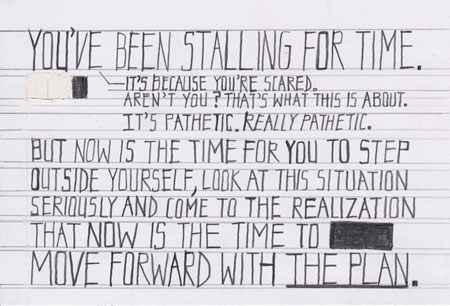 YOU'VE BEEN STALLING FOR TIME.
—IT'S BECAUSE YOU'RE SCARED.
AREN'T YOU? THAT'S WHAT THIS IS ABOUT.
IT'S PATHETIC. REALLY PATHETIC.
BUT NOW IS THE TIME FOR YOU TO STEP
OUTSIDE YOURSELF, LOOK AT THIS SITUATION
SERIOUSLY AND COME TO THE REALIZATION
THAT NOW IS THE TIME TO
MOVE FORWARD WITH THE PLAN.